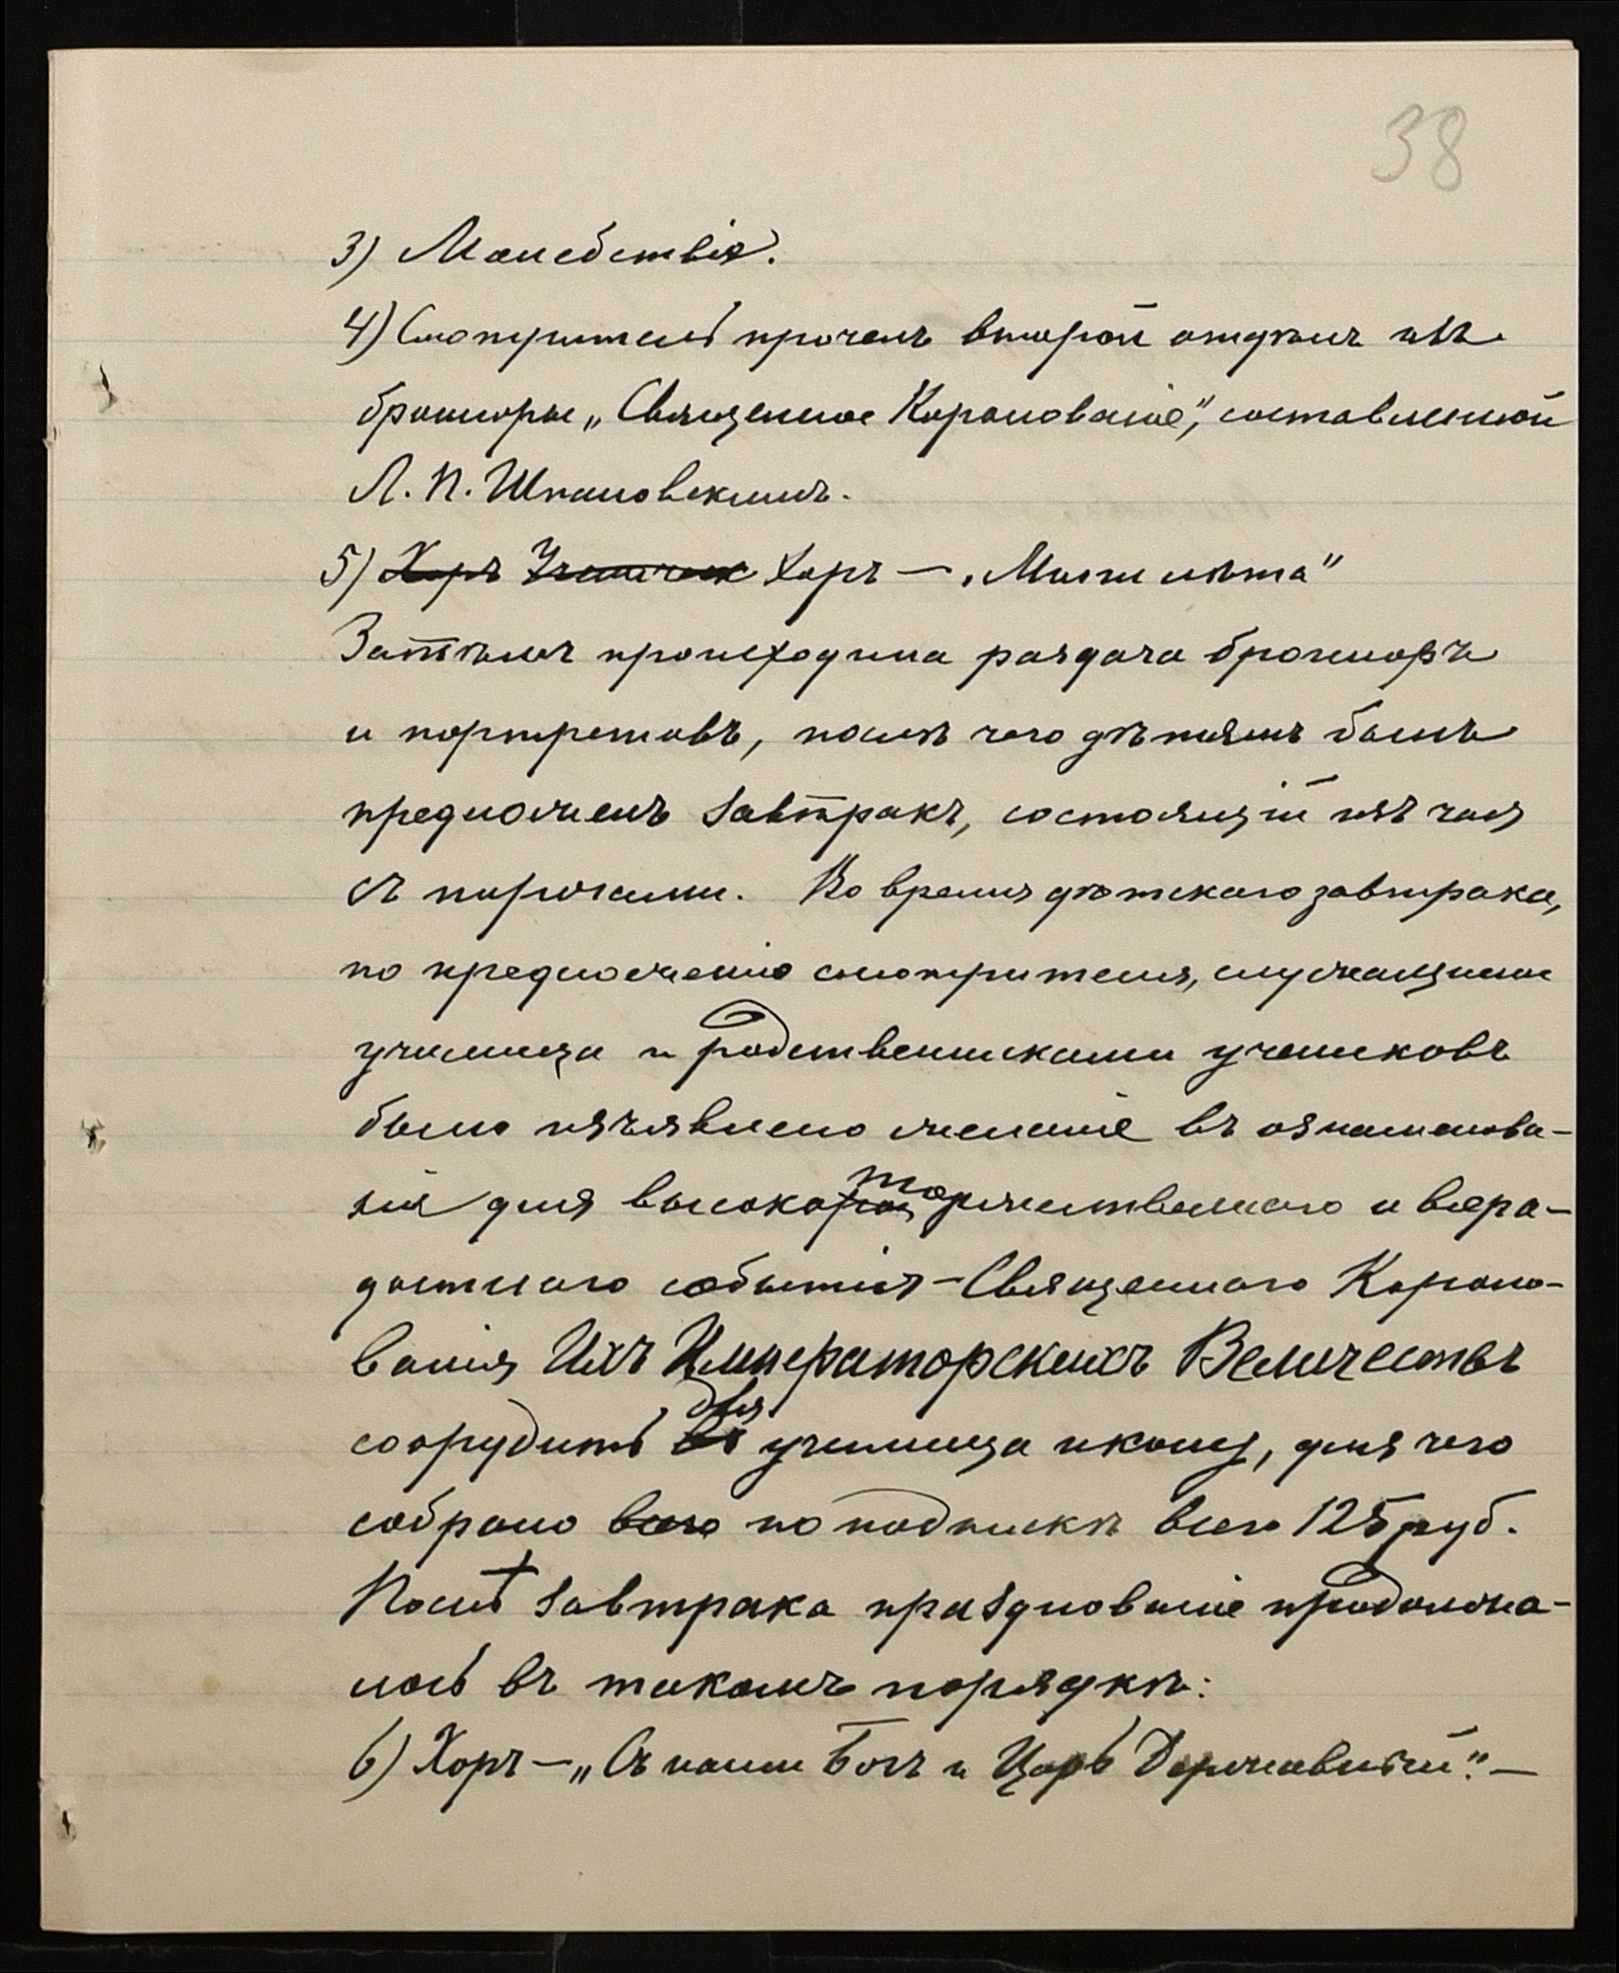 38
3) Молебствія.
4) Смотритель прочелъ второй отдѣлъ изъ
брошюры „Священное Коронованіе", составленной
Л. П. Шпановскимъ.
5) Хоръ Ученичек Хоръ — „Многи лѣта"
Затѣмъ происходила раздача брошюръ
и портретовъ, послѣ чего дѣтямъ былъ
предложенъ завтракъ, состоящій изъ чая
съ пирогами. Во время дѣтскаго завтрака,
по предложенію смотрителя, служащими
училища и родственниками учениковъ
было изъявлено желаніе въ ознаменова-
нія дня высокоторжественнаго и всера-
достнаго событія – Священнаго Короно-
ванія Ихъ Императорскихъ Величествъ
соорудить для училища икону, для чего
собрано всего по подпискѣ всего 125 руб.
Послѣ завтрака празднованіе продолжа-
лось въ такомъ порядкѣ:
6) Хоръ – „Съ нами Богъ и Царь Державный". –